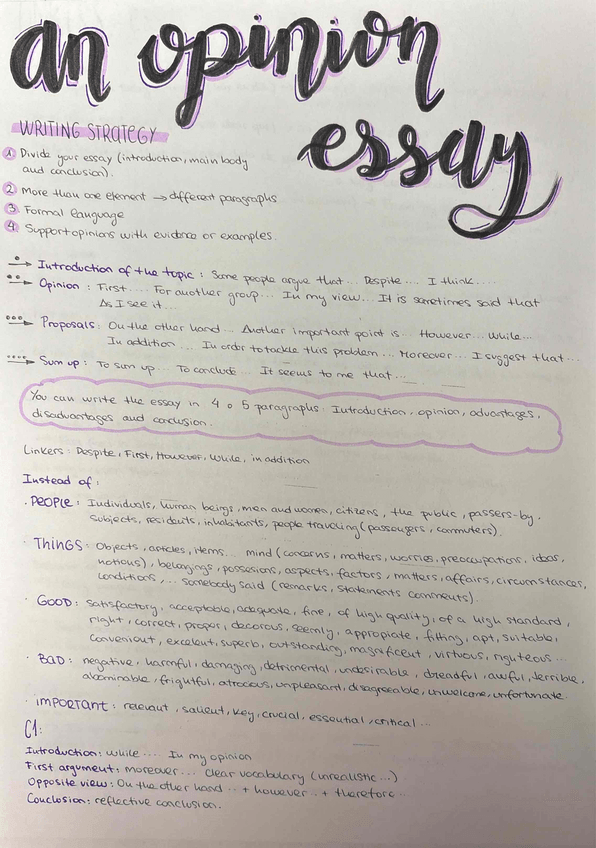 an opinion
essay
WRITING STRATEGY
1 Divide your essay (introduction, main body
and conclusion).
2 More than one element → different paragraphs
3 Formal language
4 Support opinions with evidence or examples.
Introduction of the topic : Some people argue that... Despite .... I think.....
Opinion : First.... For another group... In my view... It is sometimes said that
As I see it...
Proposals: On the other hand... Another important point is... However... While...
In addition .... In order to tackle this problem... Moreover... I suggest that...
Sum up: To sum up... To conclude... It seems to me that...
You can write the essay in 4 o 5 paragraphs: Introduction, opinion, advantages,
disadvantages and conclusion.
Linkers: Despite, First, However, While, in addition
Instead of:
· PEOPLE: Individuals, human beings, men and women, citizens, the public, passers-by,
subjects, residents, inhabitants, people traveling (passengers, commuters).
· THINGS: Objects, articles, items... mind (concerns, matters, worries, preoccupations, ideas,
notions), belongings, possesions, aspects, factors, matters, affairs, circumstances,
conditions, .. somebody said (remarks, statements comments).
· GOOD: Satisfactory, acceptable, adequate, fine, of high quality, of a high standard,
right, correct, proper, decorous, seemly, appropiate, fitting, apt, suitable,
convenient, excelent, superb, outstanding, magnificent, virtuous, righteous...
· BAD: negative, harmful, damaging, detrimental, undesirable, dreadful, awful, terrible,
abominable, frightful, atrocious, unpleasant, disagreeable, unwelcome, unfortunate.
· IMPORTANT: relevant, salient, key, crucial, essential, critical...
C1:
Introduction: while.... In my opinion
First argument: moreover... clear vocabulary (unrealistic...)
Opposite view: On the other hand .. + however.. + therefore..
Conclusion: reflective conclusion.